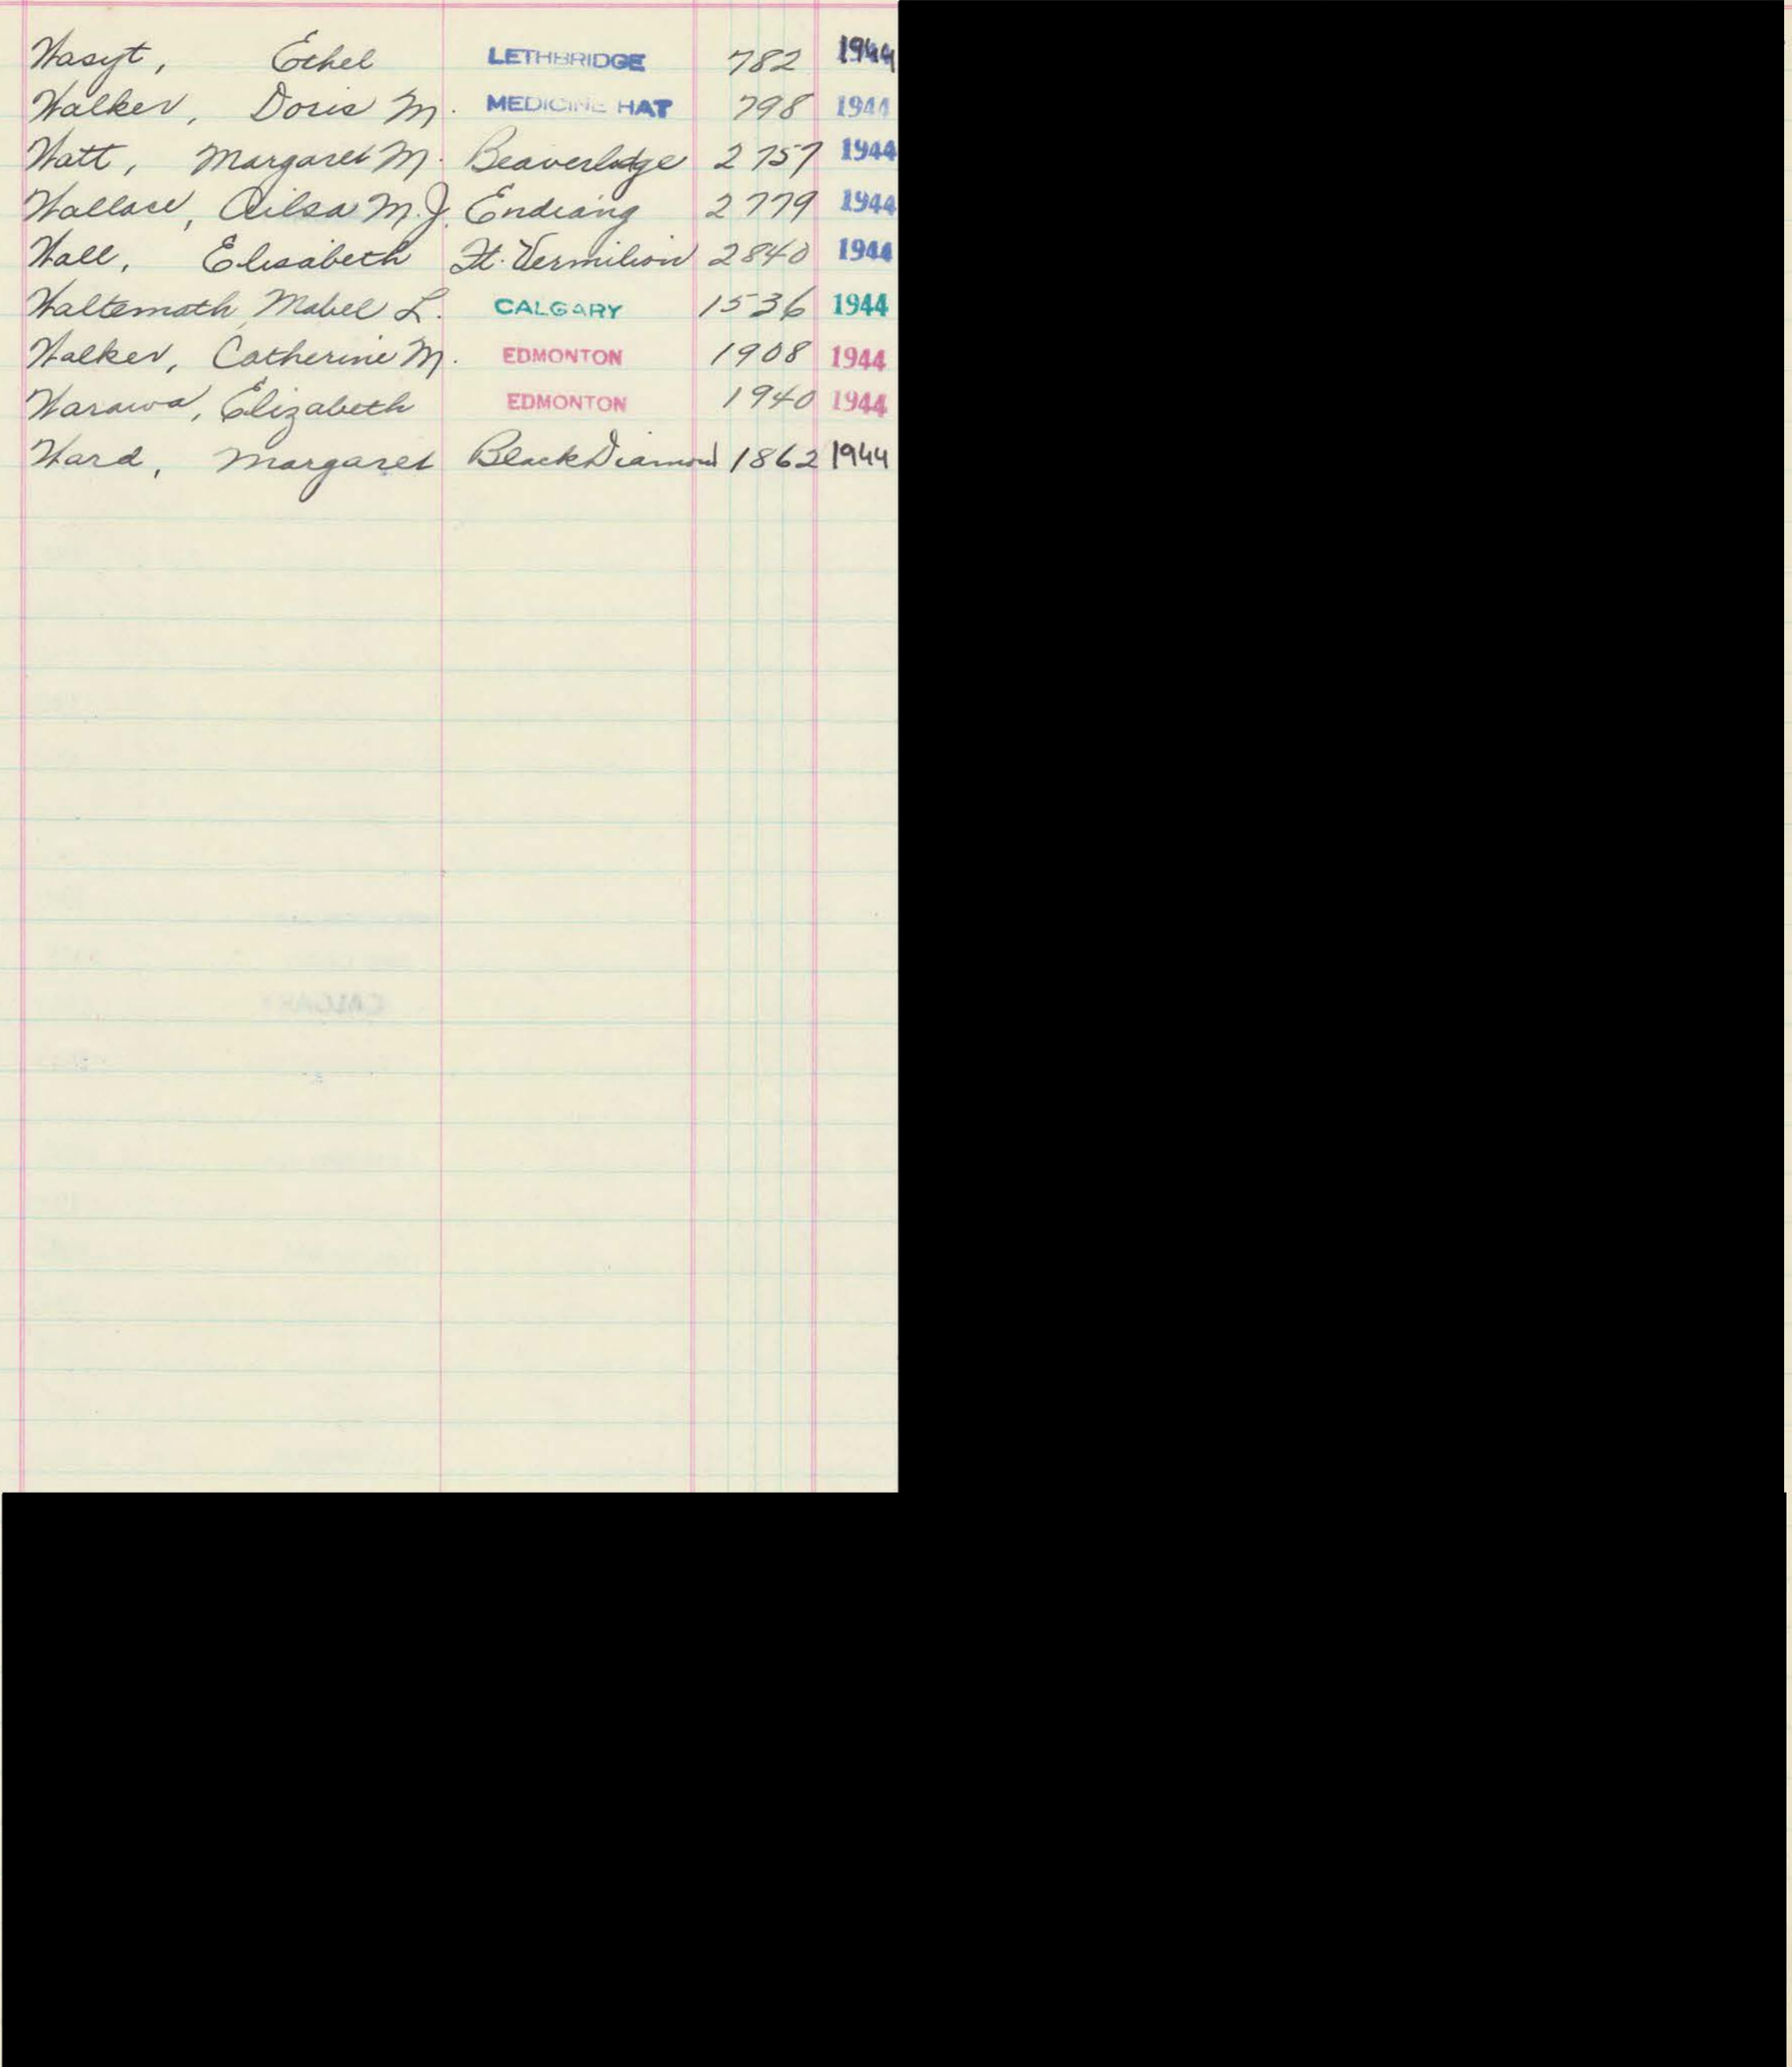 Wasyt, Ethel LETHBRIDGE 782 1944
Walker, Doris M. MEDICINE HAT 798 1944
Watt, Margaret M. Beaverlodge 2757 1944
Wallace, Ailsa M.J. Endiang 2779 1944
Wall, Elisabeth Ft. Vermilion 2840 1944
Waltemath, Mabel L. CALGARY 1536 1944
Walker, Catherine M. EDMONTON 1908 1944
Warawa, Elizabeth EDMONTON 1940 1944
Ward, Margaret Black Diamond 1862 1944